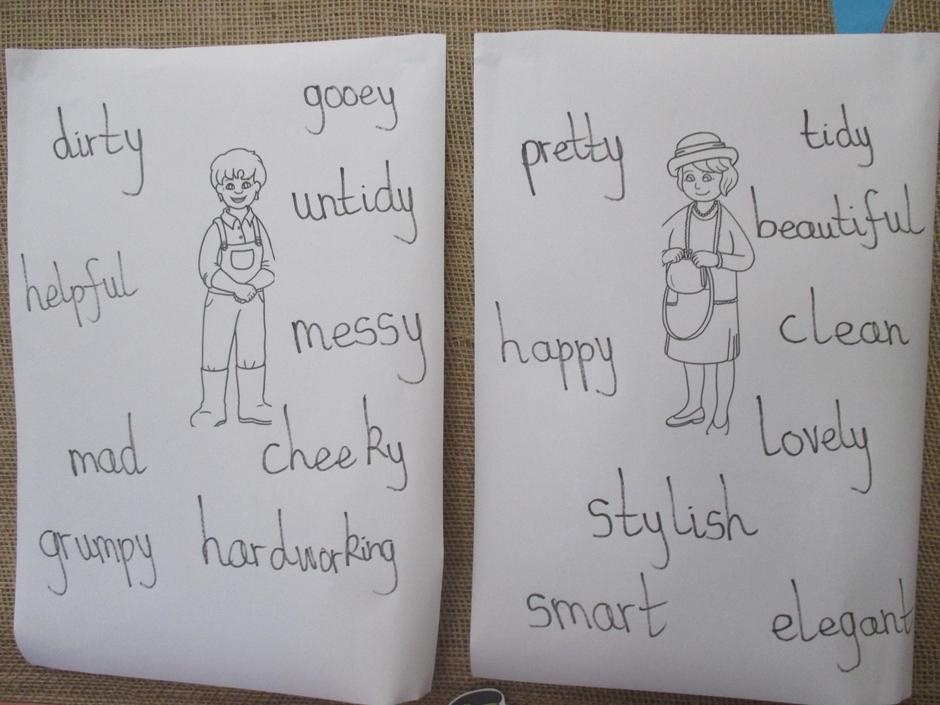 gooey
dirty
untidy
helpful
messy
mad
cheeky
grumpy
hardworking
pretty
tidy
beautiful
happy
clean
lovely
stylish
smart
elegant